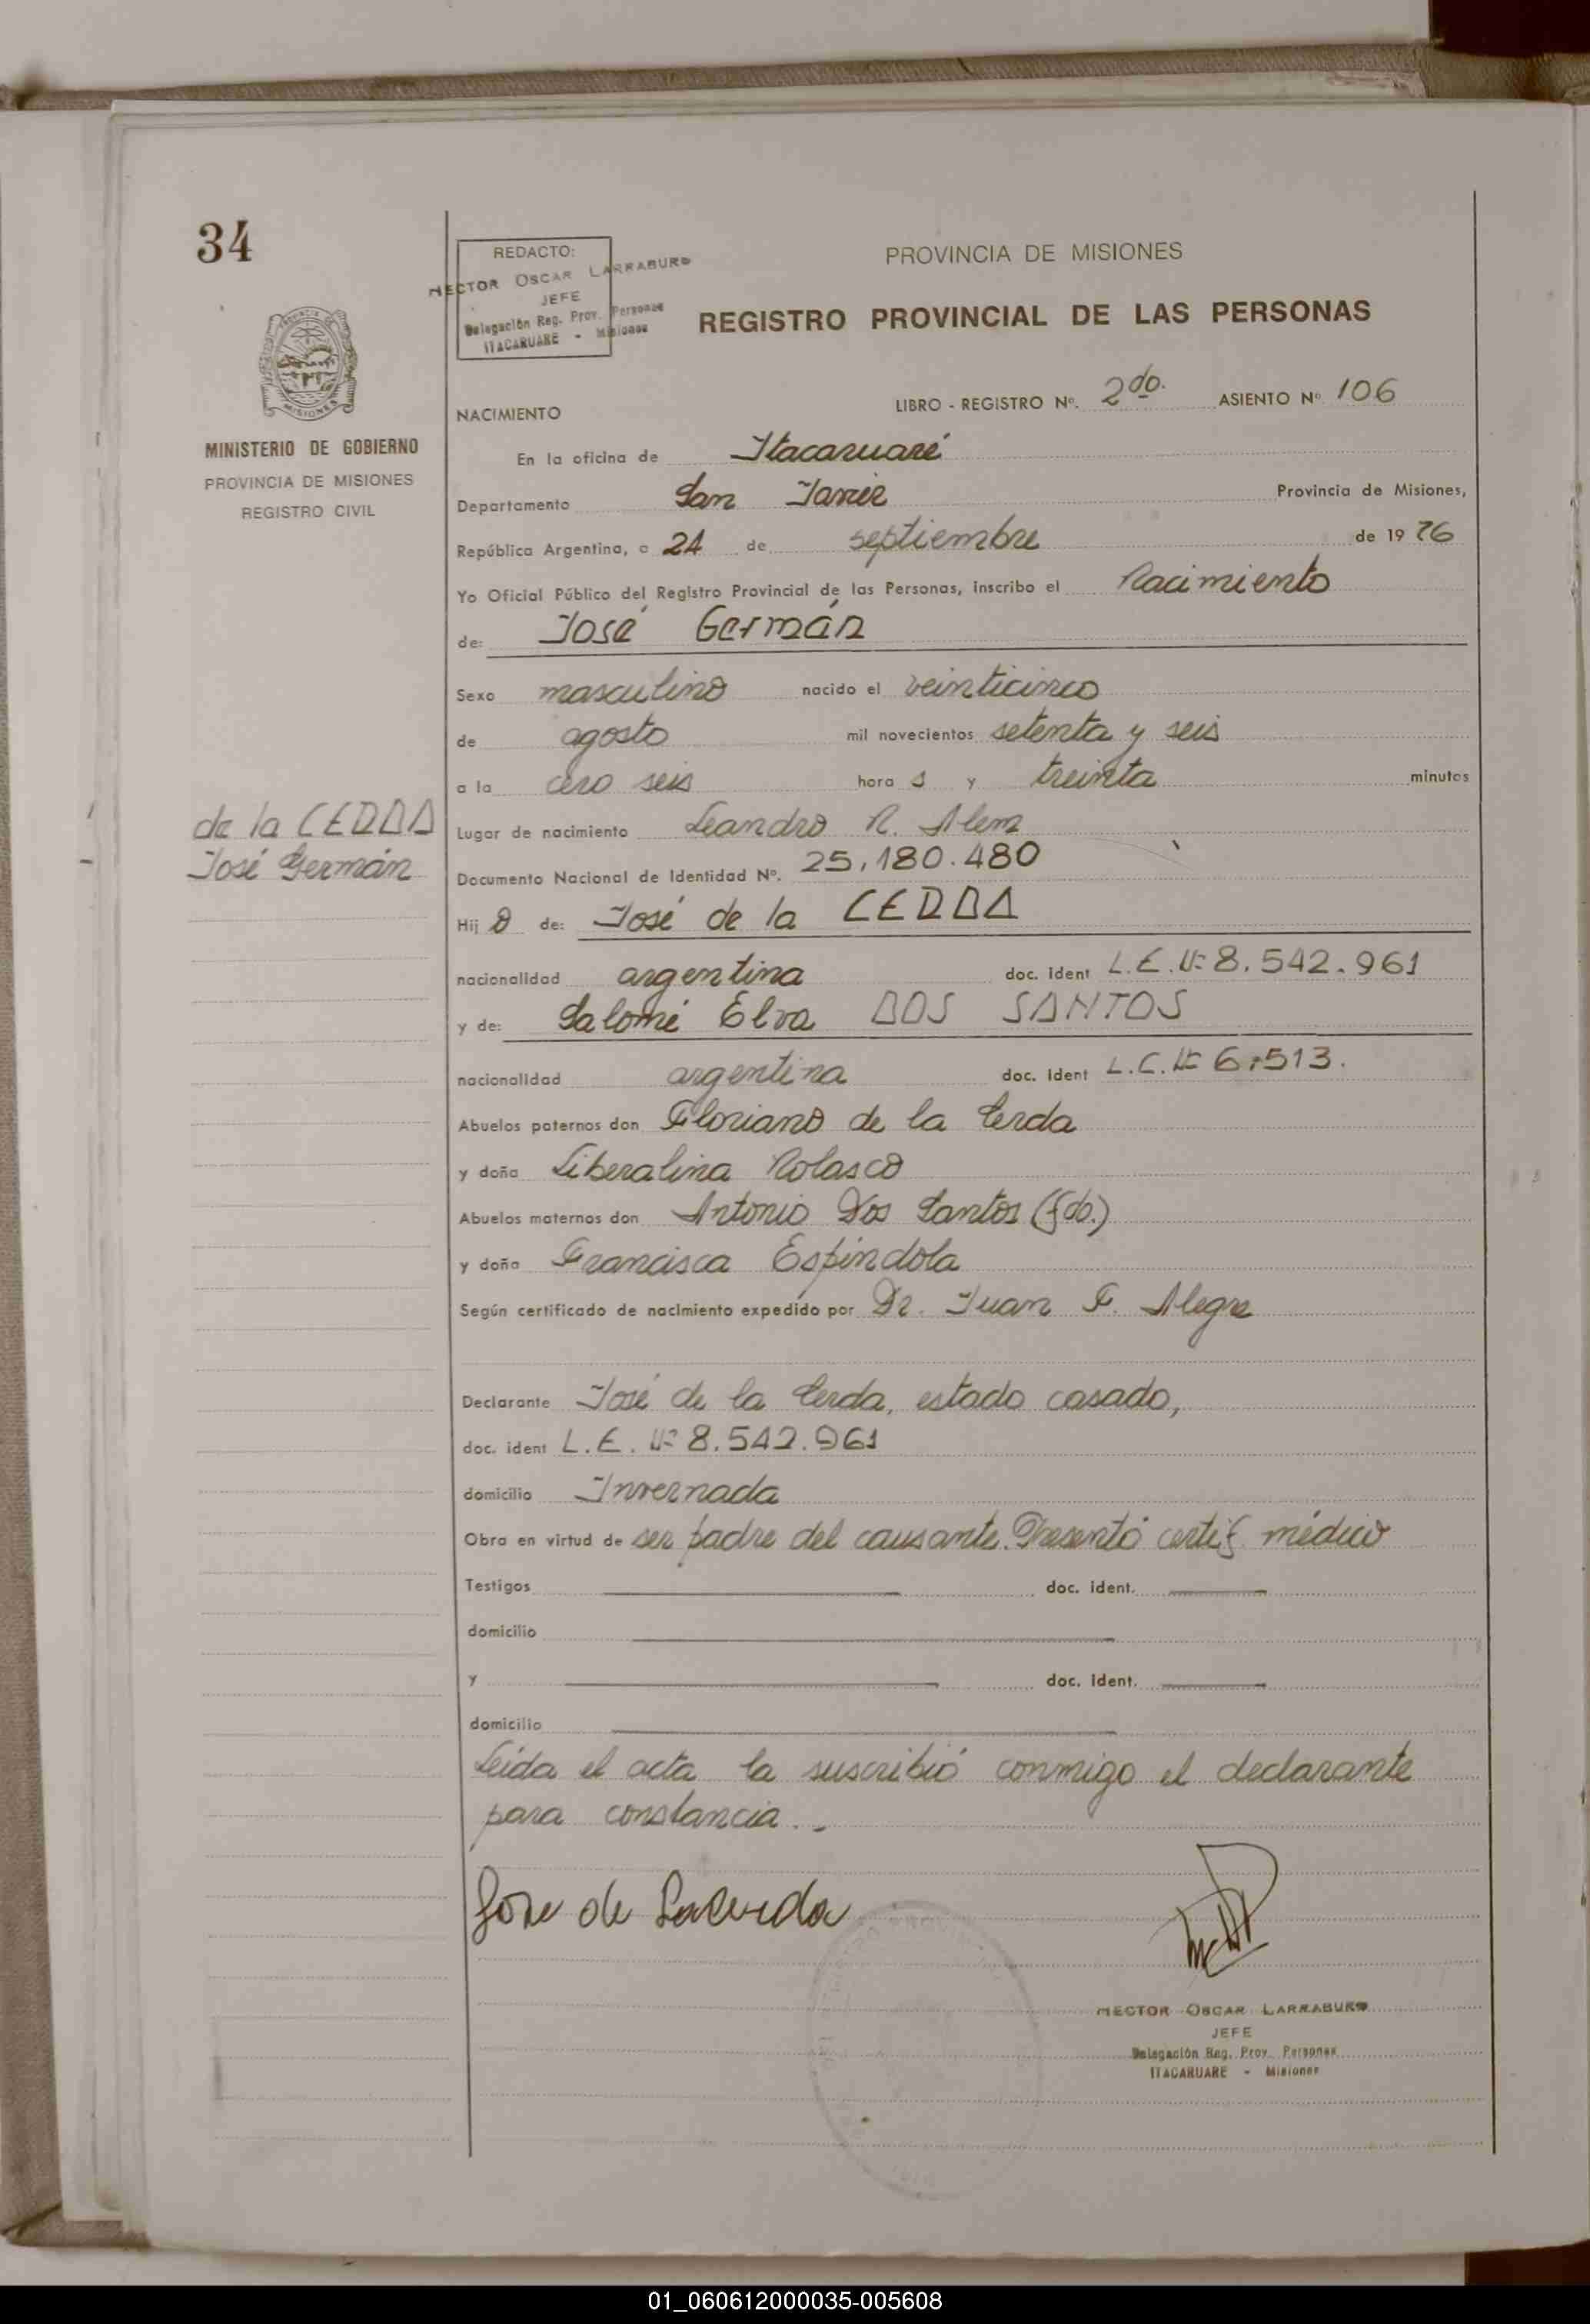 34
REDACTO:
HECTOR OSCAR LARRABURO
JEFE
Delegación Reg. Prov. Personas
ITACARUARE - Misiones
PROVINCIA DE MISIONES
REGISTRO PROVINCIAL DE LAS PERSONAS
MINISTERIO DE GOBIERNO
PROVINCIA DE MISIONES
REGISTRO CIVIL
NACIMIENTO
LIBRO - REGISTRO Nº. 2do. ASIENTO Nº 106
En la oficina de Itacaruaré
Departamento San Javier Provincia de Misiones,
República Argentina, a 24 de septiembre de 1976
Yo Oficial Público del Registro Provincial de las Personas, inscribo el Nacimiento
de: José Germán
Sexo masculino nacido el veinticinco
de agosto mil novecientos setenta y seis
a la cero seis hora s y treinta minutos
de la CERDA
José Germán
Lugar de nacimiento Leandro N. Alem
Documento Nacional de Identidad Nº. 25.180.480
Hij o de: José de la CERDA
nacionalidad argentina doc. ident L.E. Nº 8.542.961
y de: Salomé Elva DOS SANTOS
nacionalidad argentina doc. ident L.C. Nº 6.513.
Abuelos paternos don Floriano de la Cerda
y doña Liberalina Nolasco
Abuelos maternos don Antonio Dos Santos (fdo.)
y doña Francisca Espíndola
Según certificado de nacimiento expedido por Dr. Juan F. Alegre
Declarante José de la Cerda, estado casado,
doc. ident L.E. Nº 8.542.961
domicilio Invernada
Obra en virtud de ser padre del causante. Presentó certif. médico
Testigos doc. ident.
domicilio
y doc. ident.
domicilio
Leída el acta la suscribió conmigo el declarante
para constancia..-
Jose de Lacerda
HECTOR OSCAR LARRABURO
JEFE
Delegación Reg. Prov. Personas
ITACARUARE - Misiones
01_060612000035-005608